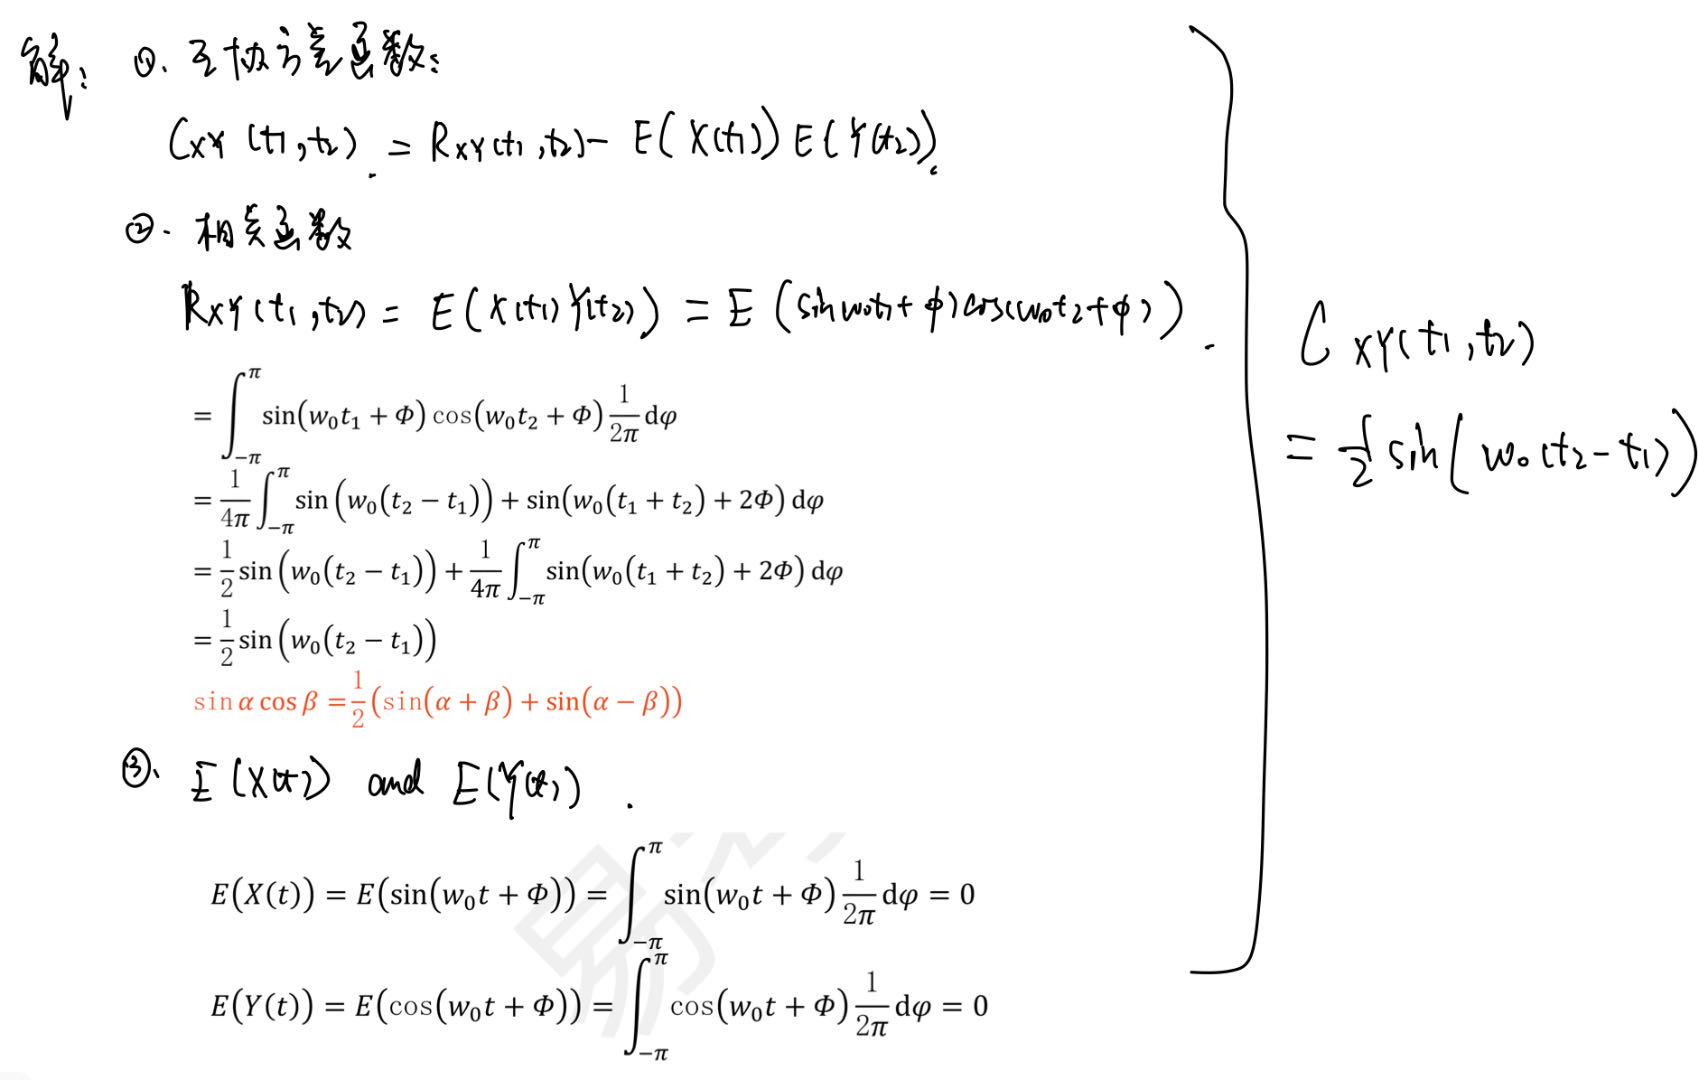 解: ①. 互协方差函数:
C_XY(t1,t2) = R_XY(t1,t2) - E(X(t1)) E(Y(t2)).
②. 相关函数
R_XY(t1,t2) = E(X(t1)Y(t2)) = E(sin w0t1+φ)cos(w0t2+φ)).
= ∫_{-π}^{π} sin(w₀t₁ + Φ) cos(w₀t₂ + Φ) 1/2π dφ
= 1/4π ∫_{-π}^{π} sin(w₀(t₂ − t₁)) + sin(w₀(t₁ + t₂) + 2Φ) dφ
= 1/2 sin(w₀(t₂ − t₁)) + 1/4π ∫_{-π}^{π} sin(w₀(t₁ + t₂) + 2Φ) dφ
= 1/2 sin(w₀(t₂ − t₁))
sin α cos β = 1/2 (sin(α + β) + sin(α − β))
③. E(X(t)) and E(Y(t)).
E(X(t)) = E(sin(w₀t + Φ)) = ∫_{-π}^{π} sin(w₀t + Φ) 1/2π dφ = 0
E(Y(t)) = E(cos(w₀t + Φ)) = ∫_{-π}^{π} cos(w₀t + Φ) 1/2π dφ = 0
C_XY(t1,t2)
= 1/2 sin(w0(t2-t1))
易